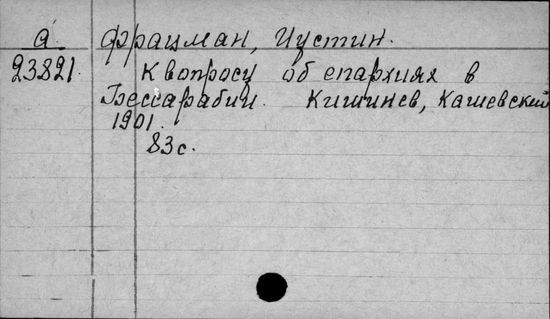 а Фрацман, Иустин.
23821. К вопросу об епархиях в
Бессарабии. Кишинев, Кашевский
1901.
83 с.